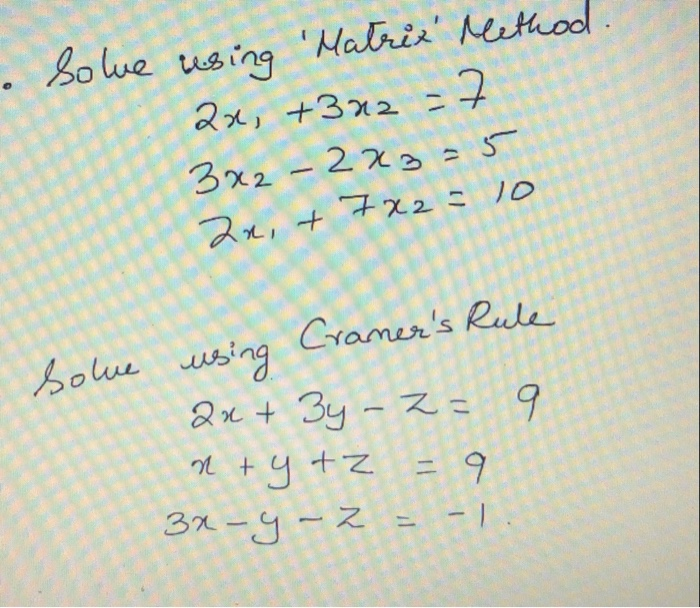 . Solve using 'Matrix' Method.
2x₁ + 3x₂ = 7
3x₂ - 2x₃ = 5
2x₁ + 7x₂ = 10
Solve using Cramer's Rule
2x + 3y - z = 9
x + y + z = 9
3x - y - z = -1.